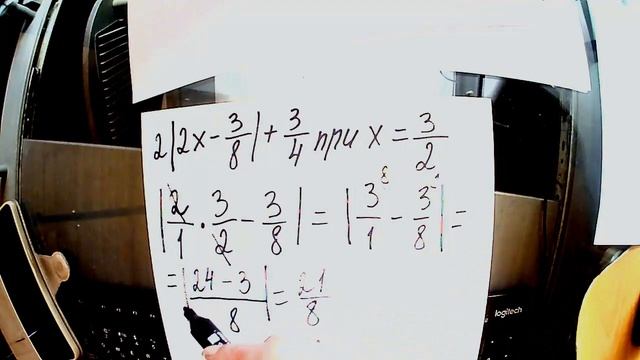 2|2x - 3/8| + 3/4 при x = 3/2
|2/1 · 3/2 - 3/8| = |3^8/1 - 3/8| =
= |24 - 3/8| = 21/8
logitech